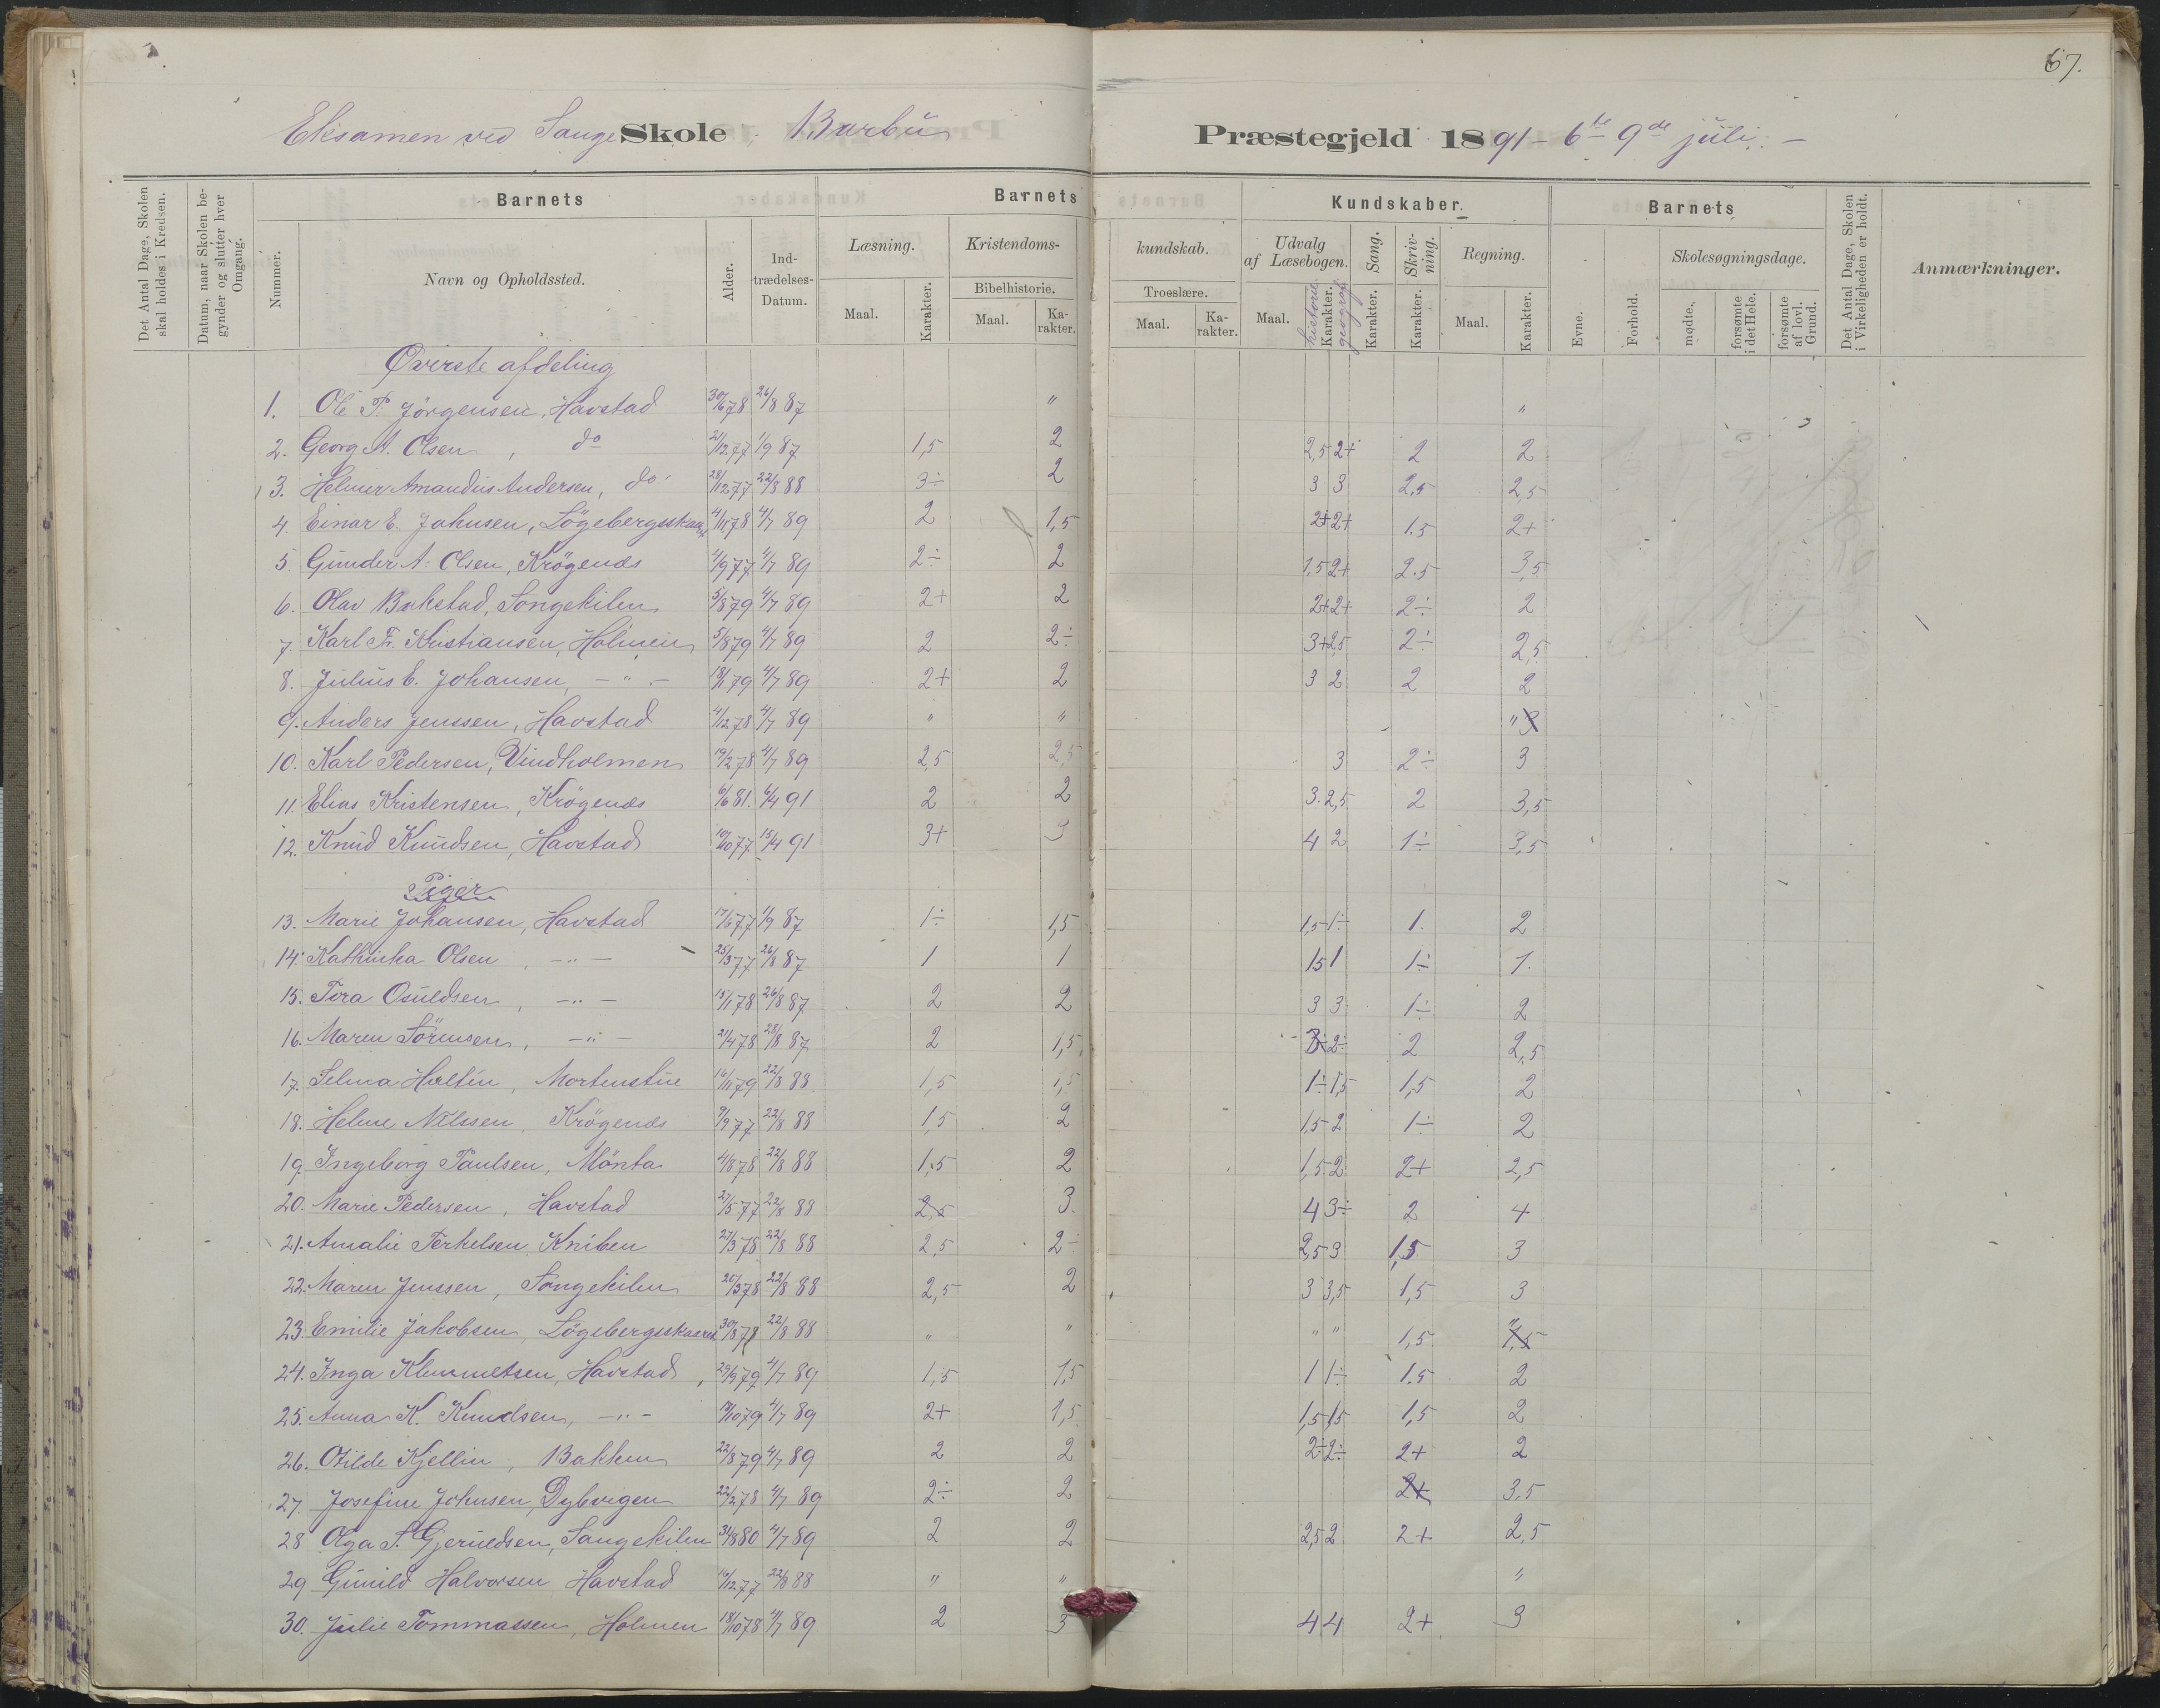 67.
Eksamen ved Sange Skole Barbu Præstegjeld 1891 - 6te 9de juli. -
Det Antal Dage, Skolen skal holdes i Kredsen.
Datum, naar Skolen begynder og slutter hver Omgang.
Barnets
Barnets
Kundskaber.
Barnets
Det Antal Dage, Skolen i Virkeligheden er holdt.
Anmærkninger.
Nummer.
Navn og Opholdssted.
Alder.
Indtrædelses-Datum.
Læsning.
Kristendoms-
kundskab.
Udvalg af Læsebogen.
Sang.
Skrivning.
Regning.
Evne.
Forhold.
Skolesøgningsdage.
Maal.
Karakter.
Bibelhistorie.
Maal.
Karakter.
Troeslære.
Maal.
Karakter.
Maal.
historie
Karakter.
geografi
Karakter.
Karakter.
Maal.
Karakter.
mødte,
forsømte i det Hele.
forsømte af lovl. Grund.
Øverste afdeling
1. Ole P. Jörgensen, Havstad 30/6 78 26/8 87 " "
2. Georg A. Olsen, do 21/12 77 1/9 87 1,5 2 2,5 2+ 2 2
3. Helmer Amandus Andersen, do 28/12 77 22/8 88 3÷ 2 3 3 2,5 2,5
4. Einar E. Johnsen, 4/11 78 4/7 89 2 1,5 2+ 2+ 1.5 2+
5. Gunder A. Olsen, Krögenes 4/9 77 4/7 89 2÷ 2 1,5 2+ 2.5 3,5
6. Olav Bakstad, Songekilen 5/8 79 4/7 89 2+ 2 2+ 2+ 2÷ 2
7. Karl Fr. Kristiansen, Holmen 5/8 79 4/7 89 2 2÷ 3+ 2,5 2÷ 2,5
8. Julius E. Johansen, - " - 18/1 79 4/7 89 2+ 2 3 2 2 2
9. Anders Jenssen, Havstad 4/12 78 4/7 89 " " "
10. Karl Pedersen, Vindholmen 19/2 78 4/7 89 2,5 2,5 3 2÷ 3
11. Elias Kristensen, Krögenes 6/6 81. 6/4 91 2 2 3. 2,5 2 3,5
12. Knud Knudsen, Havstad 10/10 77 15/4 91 3+ 3 4 2 1÷ 3,5
Piger
13. Marie Johansen, Havstad 17/6 77 1/9 87 1÷ 1,5 1,5 1÷ 1. 2
14. Kathinka Olsen, - " - 25/3 77 26/8 87 1 1 15 1 1÷ 1.
15. Tora Osuldsen, - " - 15/1 78 26/8 87 2 2 3 3 1÷ 2
16. Maren Sörensen, - " - 21/4 78 28/8 87 2 1,5 3÷ 2÷ 2 2,5
17. Selma Hultin, Mortenstue 16/11 79 22/8 88. 1,5 1,5 1÷ 1,5 1,5 2
18. Helene Nilssen, Krögenes 9/9 77 22/8 88 1,5 2 1,5 2 1÷ 2
19. Ingeborg Paulsen, Mönta 4/8 78 22/8 88 1,5 2 1,5 2 2+ 2,5
20. Marie Pedersen, Havstad 27/5 77 22/8 88 2,5 3. 4 3÷ 2 4
21. Amalie Terkelsen, Kniben 27/3 78 22/8 88 2,5 2÷ 2,5 3 1,5 3
22. Maren Jenssen, Songekilen 20/3 78 22/8 88 2,5 2 3 3,5 1,5 3
23. Emilie Jakobsen, 30/8 78 22/8 88 " " " " 1,5 "
24. Inga Klemmetsen, Havstad, 29/9 79 4/7 89 1,5 1,5 1 1÷ 1.5 2
25. Anna K. Knudsen, - " - 19/10 79 4/7 89 2+ 1,5 1,5 1,5 1,5 2
26. Otilde Kjellin, Bakken 22/8 79 4/7 89 2 2 2÷ 2÷ 2+ 2
27. Josefine Johnsen, Dybvigen 22/2 78 4/7 89 2÷ 2 2+ 3,5
28 Olga S. Gjeruldsen, Sangekilen 31/8 80 4/7 89 2 2 2,5 2 2+ 2,5
29 Gunild Halvorsen Havstad 16/12 77 22/8 88 " " "
30. Julie Tommassen, Holmen 18/10 78 4/7 89 2 3 4 4 2+ 3